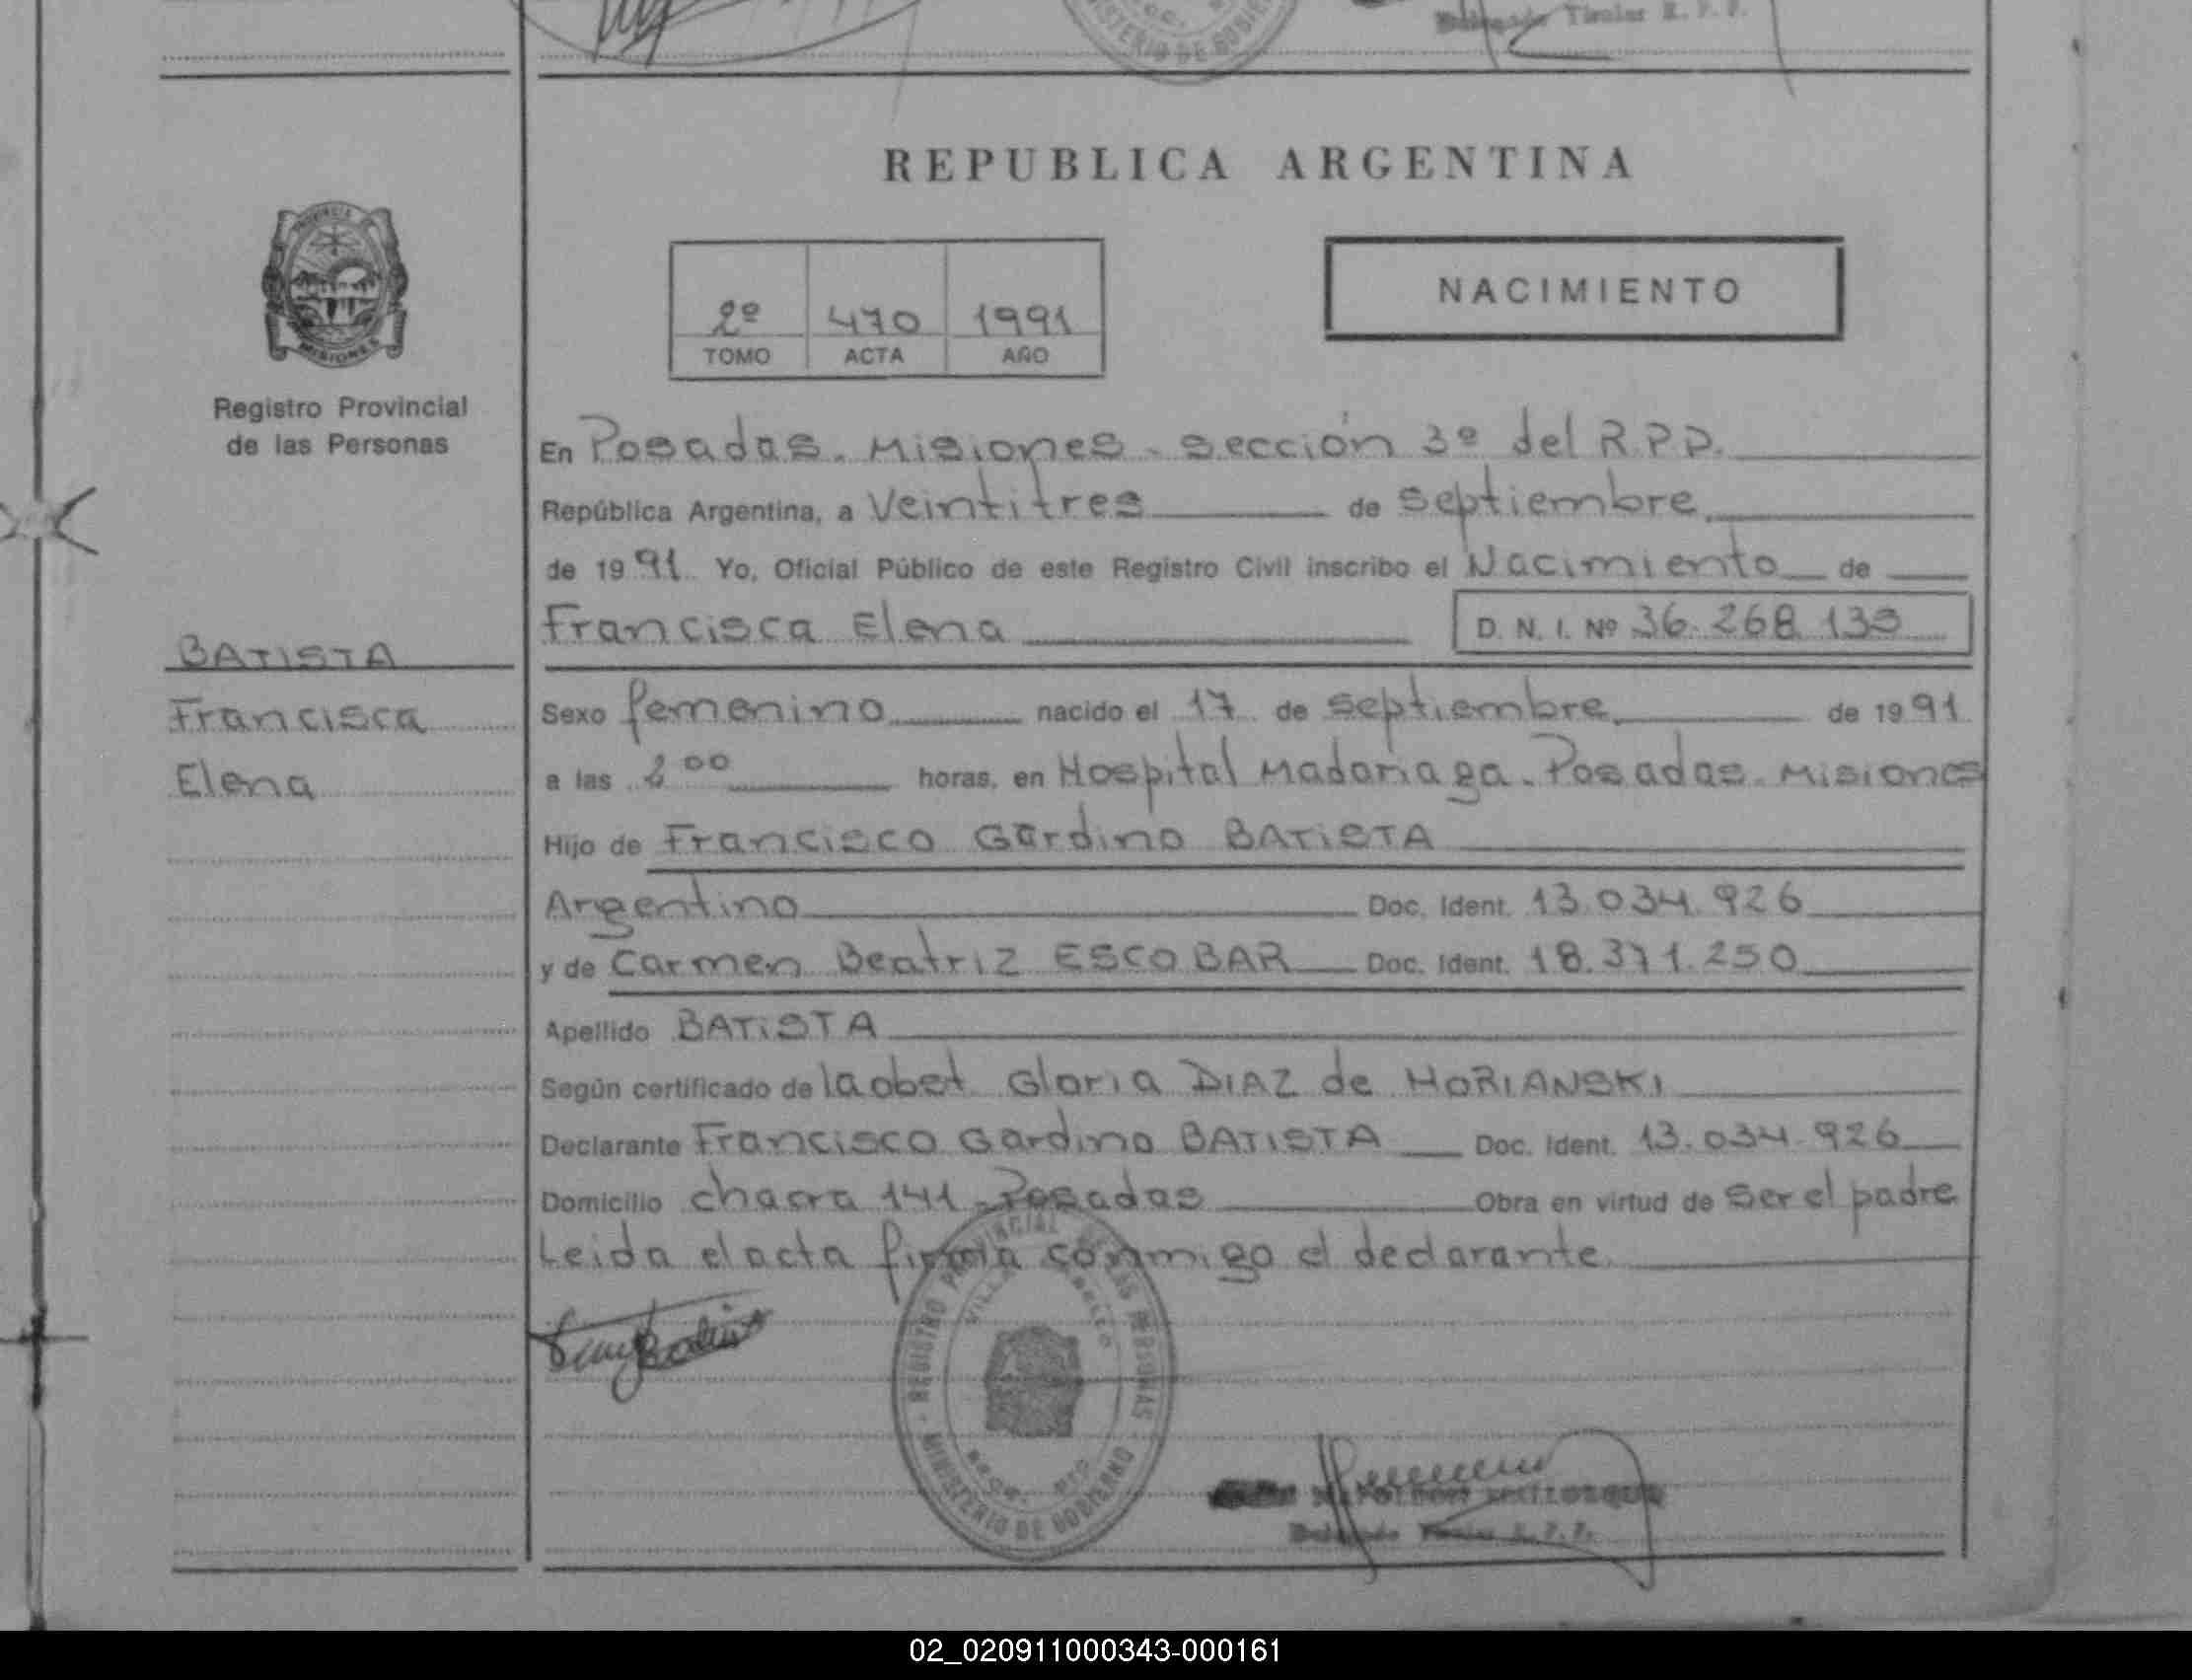 Titular R. P. P.
MINISTERIO DE GOBIERNO
REPUBLICA ARGENTINA
NACIMIENTO
2º 470 1991
TOMO ACTA AÑO
PROVINCIA
MISIONES
Registro Provincial
de las Personas
En Posadas. Misiones - Sección 3º del R.P.P.
República Argentina, a Veintitres de Septiembre
de 1991 Yo, Oficial Público de este Registro Civil inscribo el Nacimiento de
Francisca Elena D. N. I. Nº 36.268.139
BATISTA
Francisca
Elena
Sexo femenino nacido el 17 de Septiembre de 1991
a las 2 00 horas, en Hospital Madariaga. Posadas. Misiones
Hijo de Francisco Gardino BATISTA
Argentino Doc. Ident. 13.034.926
y de Carmen Beatriz ESCOBAR Doc. Ident. 18.371.250
Apellido BATISTA
Según certificado de la obst. Gloria DIAZ de MORIANSKI
Declarante Francisco Gardino BATISTA Doc. Ident. 13.034.926
Domicilio chacra 141 - Posadas Obra en virtud de Ser el padre
Leida el acta firma conmigo el declarante.
REGISTRO PROVINCIAL DE LAS PERSONAS
VILLA
MINISTERIO DE GOBIERNO
Delegado Titular R. P. P.
02_020911000343-000161